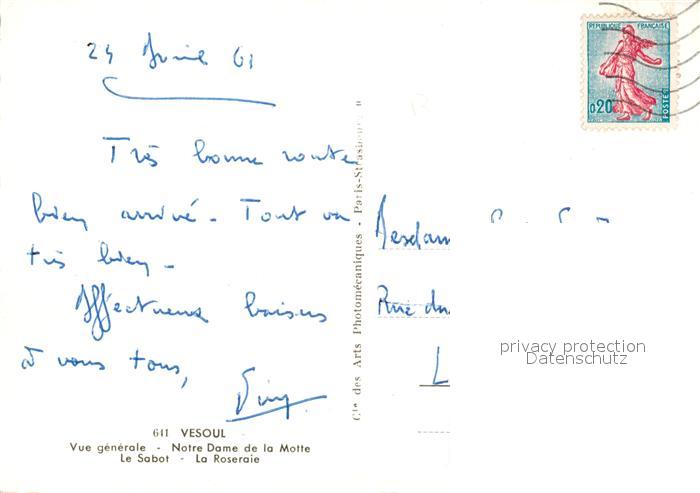 24 Avril 61
Très bonne route
bien arrivé - Tout va
très bien -
Affectueux baisers
à vous tous,
641 VESOUL
Vue générale - Notre Dame de la Motte
Le Sabot - La Roseraie
Cie des Arts Photomécaniques - Paris-Strasbourg
REPUBLIQUE FRANÇAISE
0,20
POSTES
Rue du
L
privacy protection
Datenschutz